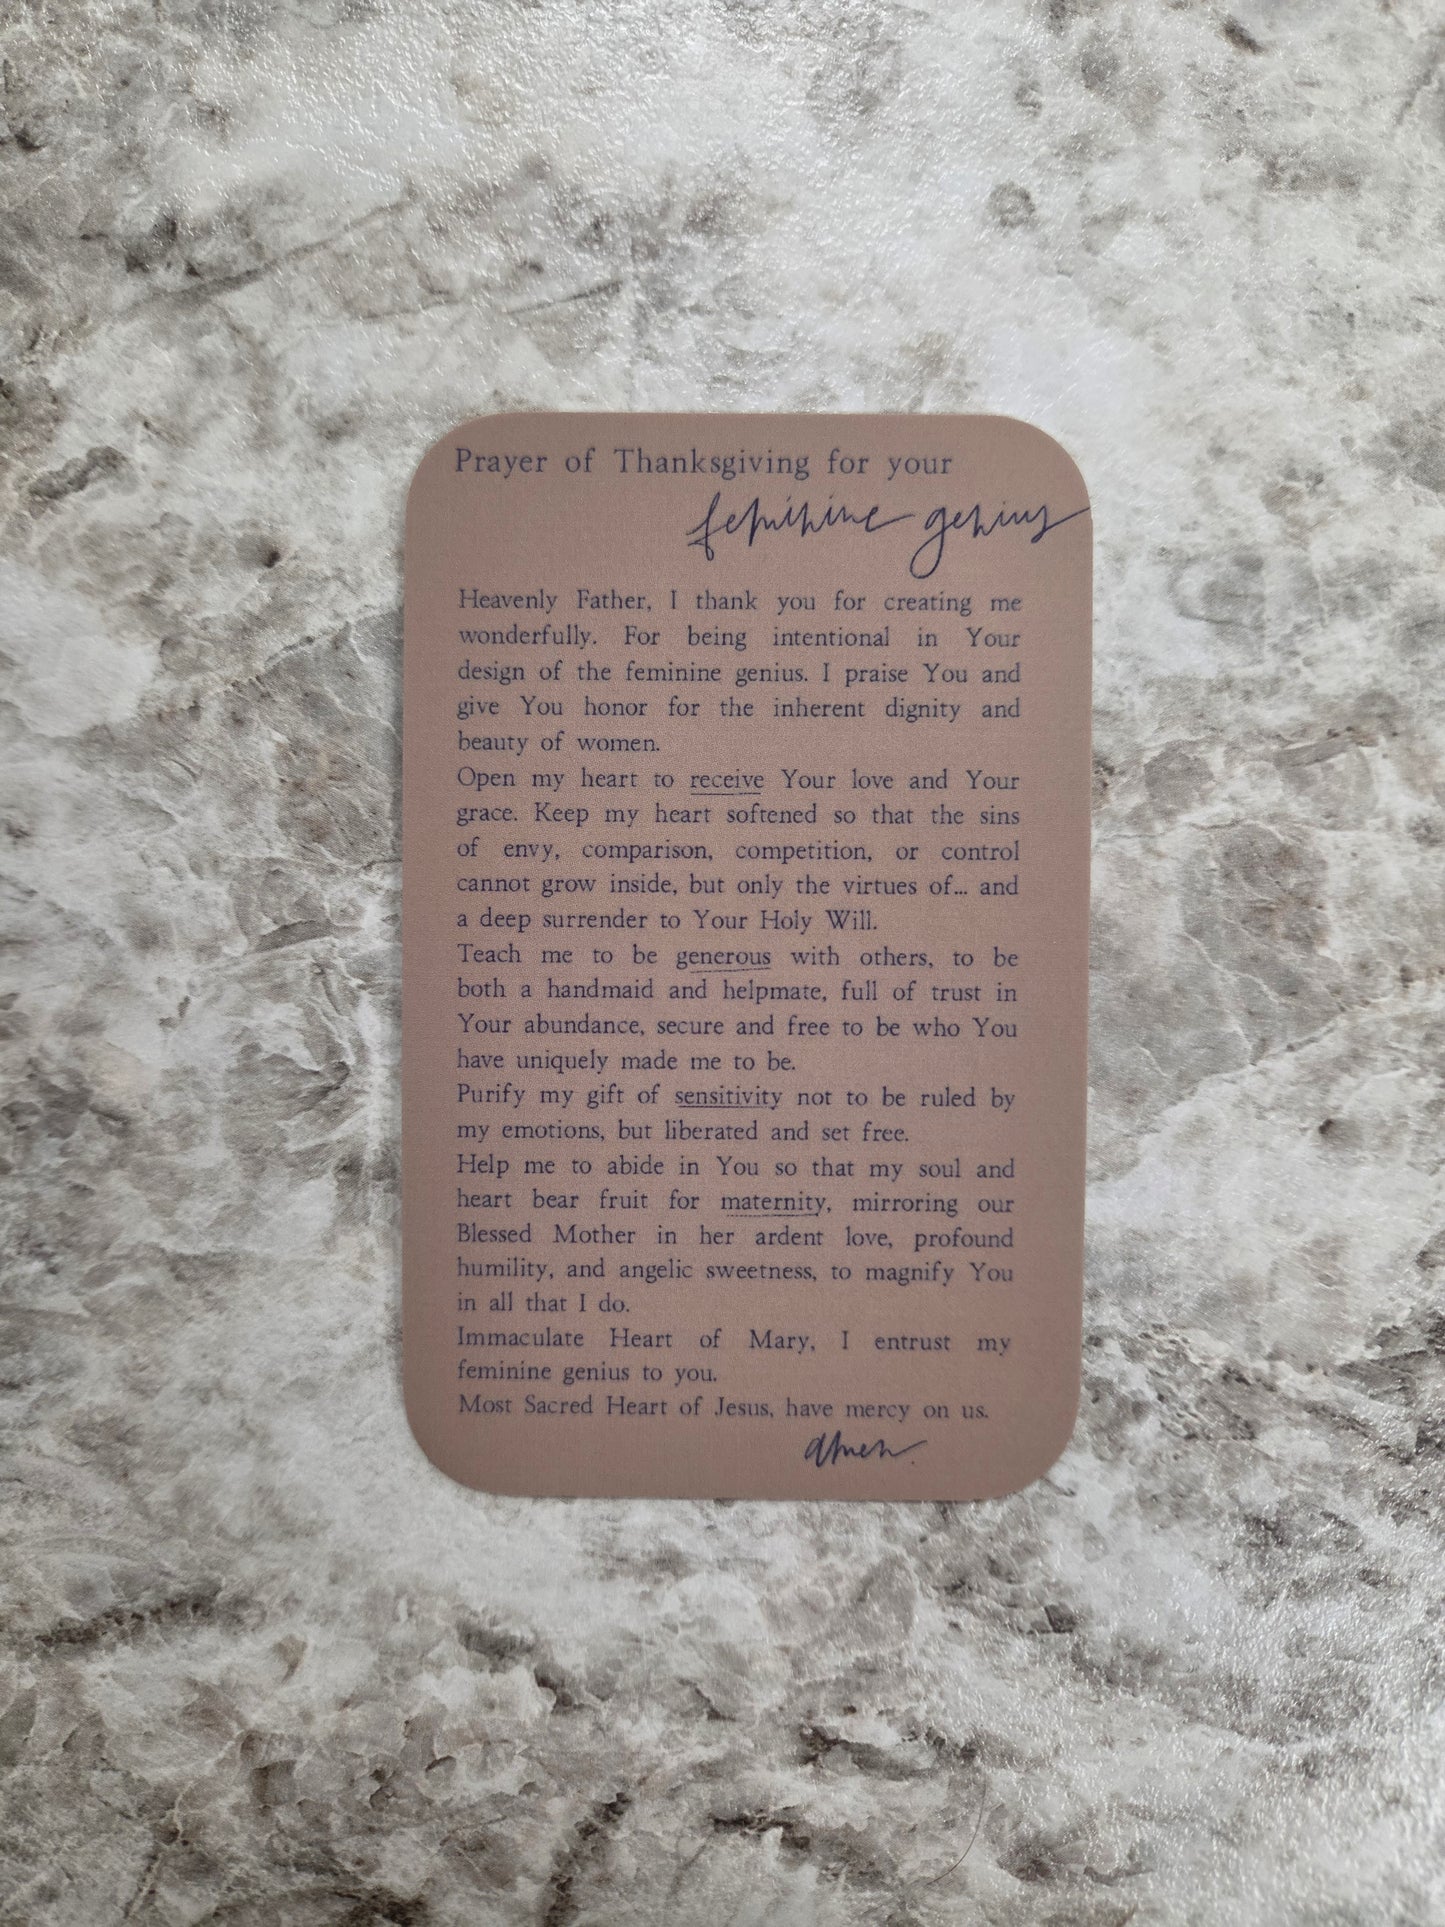 Prayer of Thanksgiving for your
feminine genius
Heavenly Father, I thank you for creating me
wonderfully. For being intentional in Your
design of the feminine genius. I praise You and
give You honor for the inherent dignity and
beauty of women.
Open my heart to receive Your love and Your
grace. Keep my heart softened so that the sins
of envy, comparison, competition, or control
cannot grow inside, but only the virtues of... and
a deep surrender to Your Holy Will.
Teach me to be generous with others, to be
both a handmaid and helpmate, full of trust in
Your abundance, secure and free to be who You
have uniquely made me to be.
Purify my gift of sensitivity not to be ruled by
my emotions, but liberated and set free.
Help me to abide in You so that my soul and
heart bear fruit for maternity, mirroring our
Blessed Mother in her ardent love, profound
humility, and angelic sweetness, to magnify You
in all that I do.
Immaculate Heart of Mary, I entrust my
feminine genius to you.
Most Sacred Heart of Jesus, have mercy on us.
Amen.